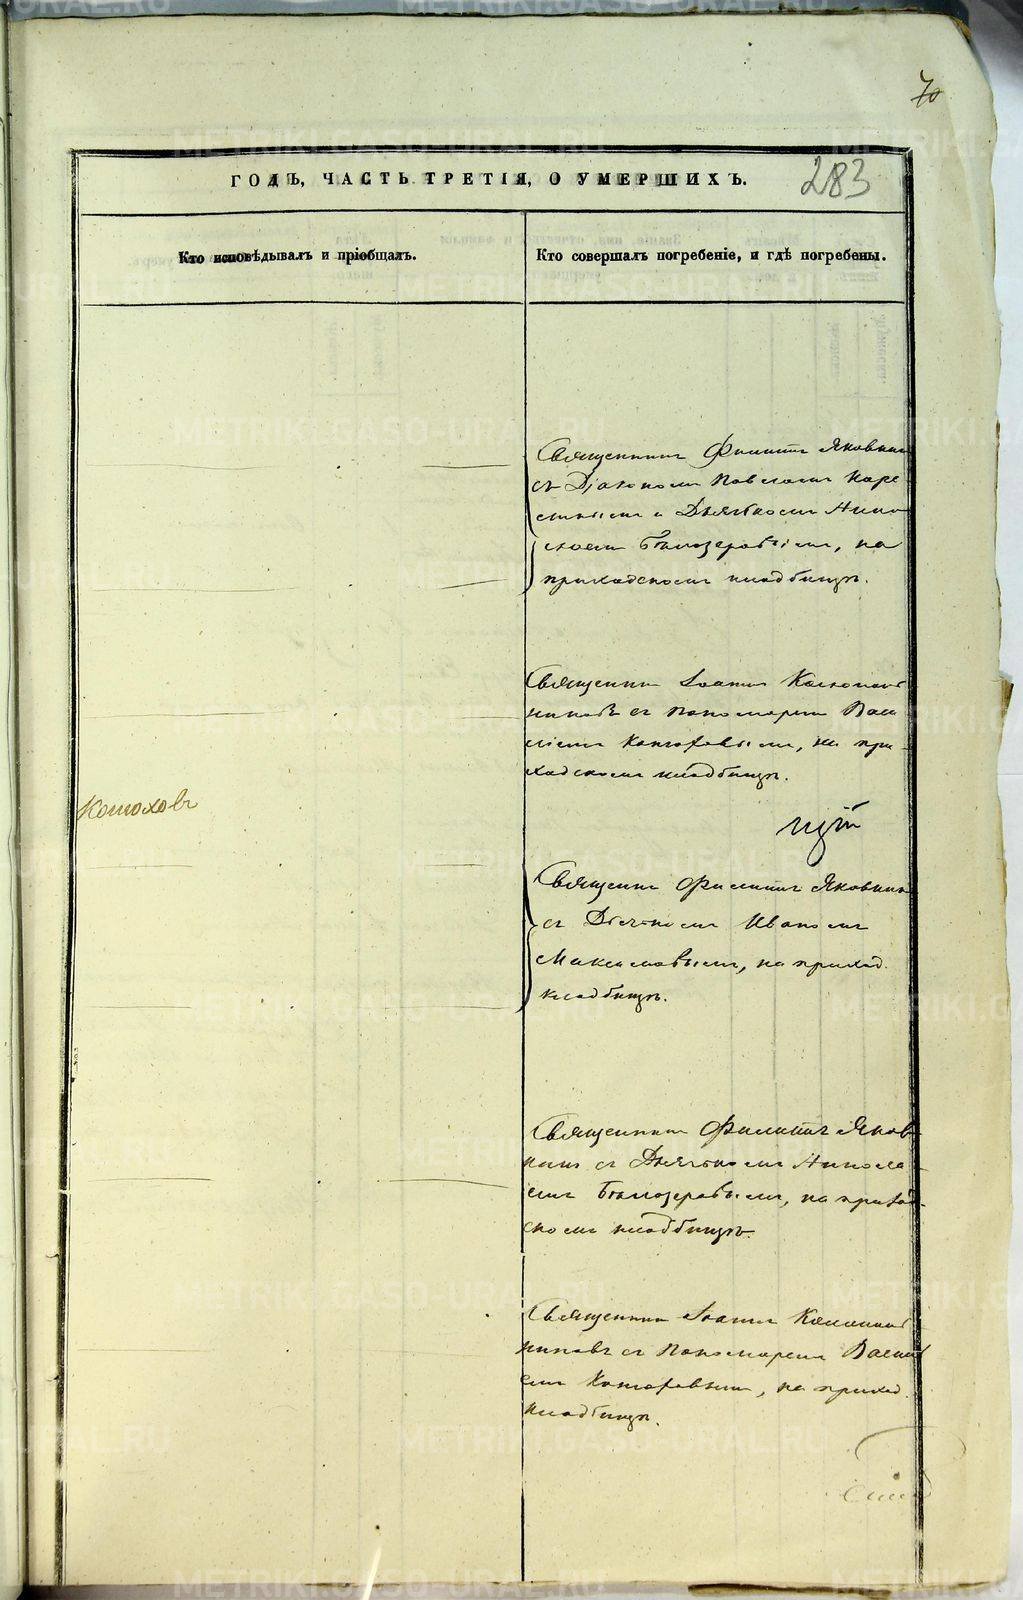 70
ГОДЪ, ЧАСТЬ ТРЕТІЯ, О УМЕРШИХЪ.
283
Кто исповѣдывалъ и пріобщалъ.
Кто совершалъ погребеніе, и гдѣ погребены.
Священникъ Филиппъ Яковкинъ
съ Діакономъ Павломъ
и Дьячкомъ Нико
лаемъ Бѣлозеровымъ, на
приходскомъ кладбищѣ.
Священникъ Іоаннъ
съ Пономаремъ Васи
ліемъ на при-
ходскомъ кладбищѣ.
Священникъ Филиппъ Яковкинъ
съ Дьячкомъ Иваномъ
Максимовымъ, на приход.
кладбищѣ.
Священникъ Филиппъ Яков-
кинъ съ Дьячкомъ Никола-
емъ Бѣлозеровымъ, на приход-
скомъ кладбищѣ.
Священникъ Іоаннъ
съ Пономаремъ Васили
емъ на приход.
кладбищѣ.
METRIKI.GASO-URAL.RU